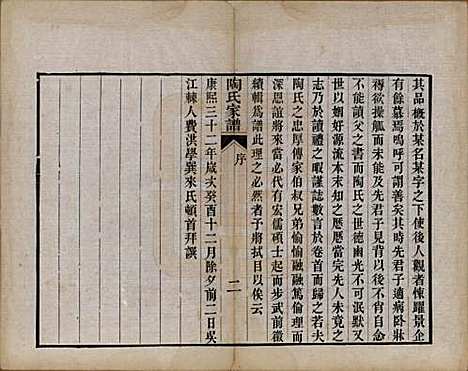 其品概於某名某字之下使後人觀者悚躍景企
有餘慕焉嗚呼可謂善矣其時先君子適病臥牀
蓐欲操觚而未能及先君子見背以後以不孝
不能讀父之書而陶氏之世德幽光不可終
世以姻好源流本末悉之歷歷當完先人未竟之
志乃於讀禮之暇謹誌數言於卷首而歸之若夫
陶氏之忠厚傳家伯叔兄弟愉愉融融篤倫理而
深恩誼將來當必代有宏儒碩士起而步武前徽
續輯為譜此理之必然者予將拭目以俟云
陶氏家譜
序
二
康熙三十二年歲次癸酉十二月除夕前二日吳
江棘人費洪學巽來氏頓首拜譔